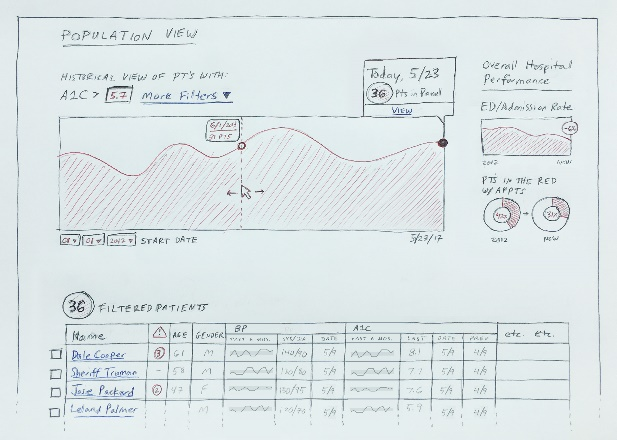 POPULATION VIEW
HISTORICAL VIEW OF PT'S WITH:
A1C > 5.7 More Filters ▼
Today, 5/23
36 Pts in Panel
VIEW
Overall Hospital
Performance
ED/Admission Rate
2012 NOW
PTS IN THE RED
W/ APPTS
2012 NOW
START DATE
5/23/17
36 FILTERED PATIENTS
Name AGE GENDER BP A1C etc. etc.
DATE LAST DATE PREV
Dale Cooper 3 61 M 140/90 5/9 8.1 5/9 4/9
Sheriff Truman - 58 M 5/9 7.7 5/9 4/9
Jose Packard 2 47 F 5/9 7.6 5/9 4/9
Leland Palmer M 5/9 5.9 5/9 4/9